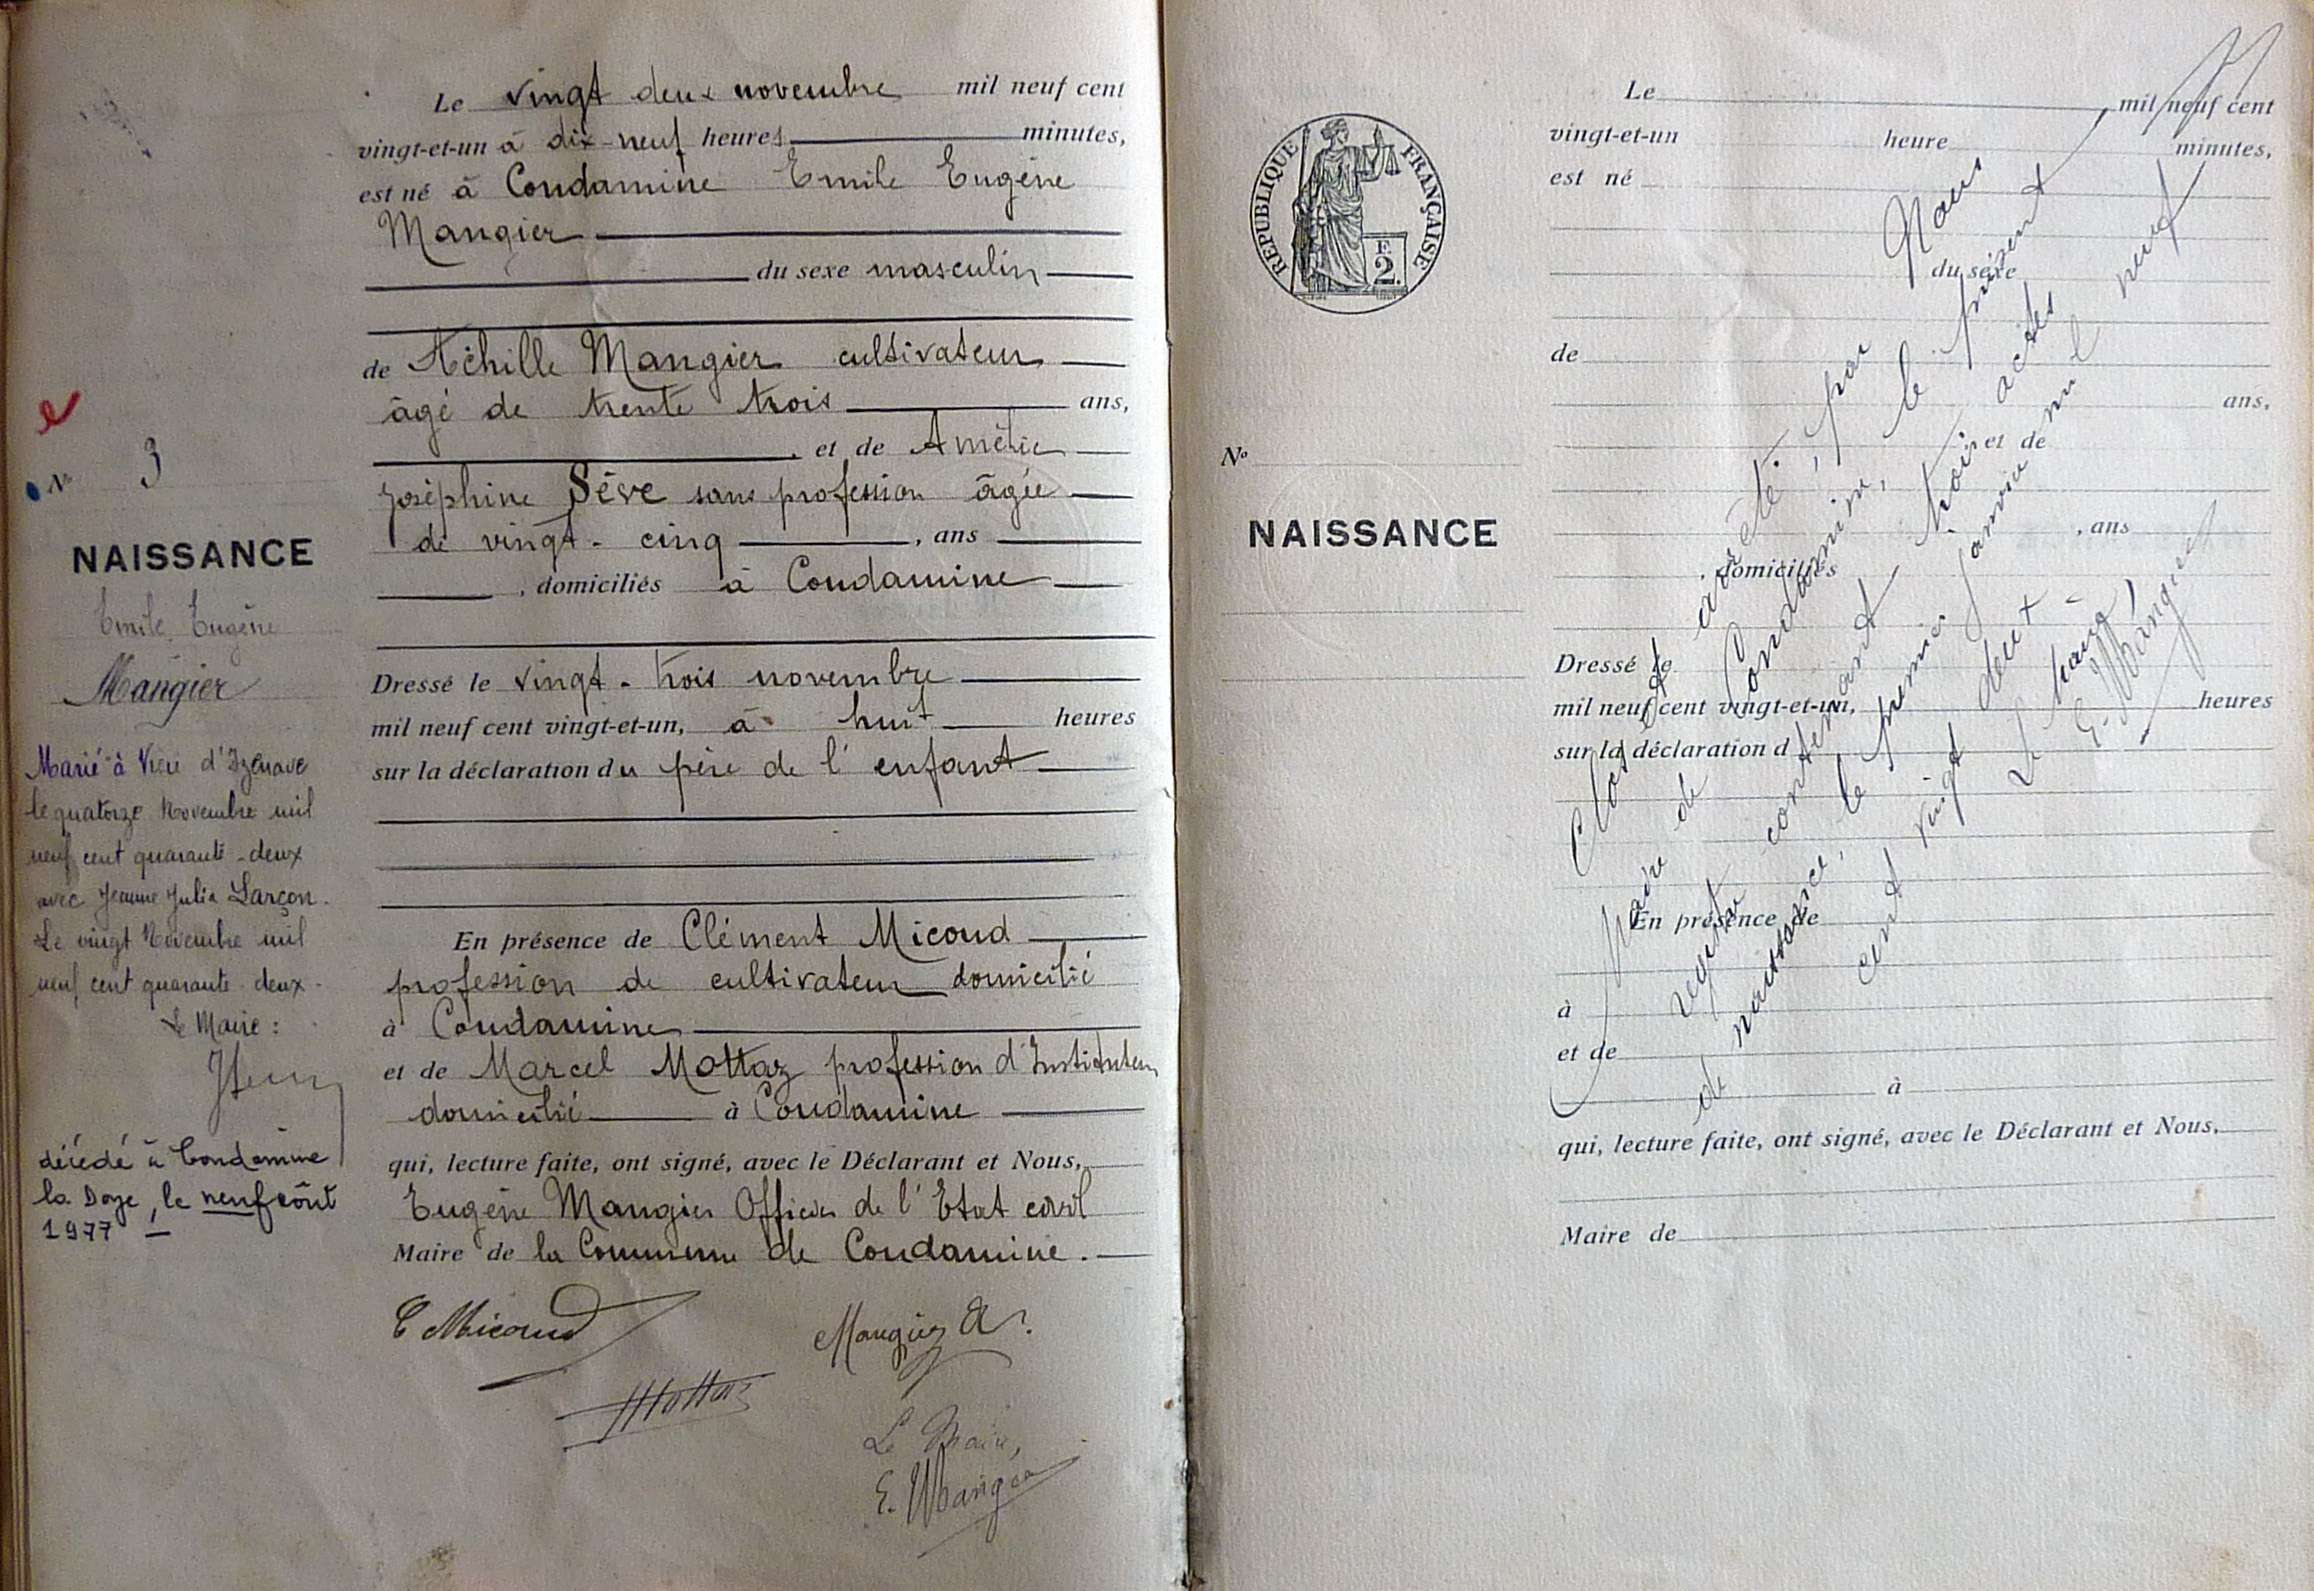 N° 3
NAISSANCE
Emile Eugène
Mangier
Marié à Vieu d'Izenave
le quatorze Novembre mil
neuf cent quarante-deux
avec Jeanne Julia Larçon.
Le vingt Novembre mil
neuf cent quarante-deux.
Le Maire :
décédé à Condamine
la Doye, le neuf août
1977
Le vingt deux novembre mil neuf cent
vingt-et-un à dix-neuf heures minutes,
est né à Condamine Emile Eugène
Mangier
du sexe masculin
de Achille Mangier cultivateur
âgé de trente trois ans,
, et de Amélie
Joséphine Sève sans profession âgée
de vingt-cinq , ans
, domiciliés à Condamine
Dressé le vingt-trois novembre
mil neuf cent vingt-et-un, à huit heures
sur la déclaration du père de l'enfant
En présence de Clément Micoud
profession de cultivateur domicilié
à Condamine
et de Marcel Mottaz profession d'Instituteur
domicilié à Condamine
qui, lecture faite, ont signé, avec le Déclarant et Nous,
Eugène Mangier Officier de l'Etat civil
Maire de la Commune de Condamine.
C Micoud
Mangier A.
Mottaz
Le Maire,
E. Mangier
REPUBLIQUE FRANÇAISE
F. 2.
N°
NAISSANCE
Le mil neuf cent
vingt-et-un heure minutes,
est né
du sexe
de
ans,
, et de
, ans
, domiciliés
Dressé le
mil neuf cent vingt-et-un, heures
sur la déclaration d
En présence de
à
et de
à
qui, lecture faite, ont signé, avec le Déclarant et Nous,
Maire de
Clos et arrêté, par Nous
Maire de Condamine, le présent
registre contenant trois actes
de naissance, le premier janvier mil neuf
cent vingt deux
Le Maire,
E. Mangier